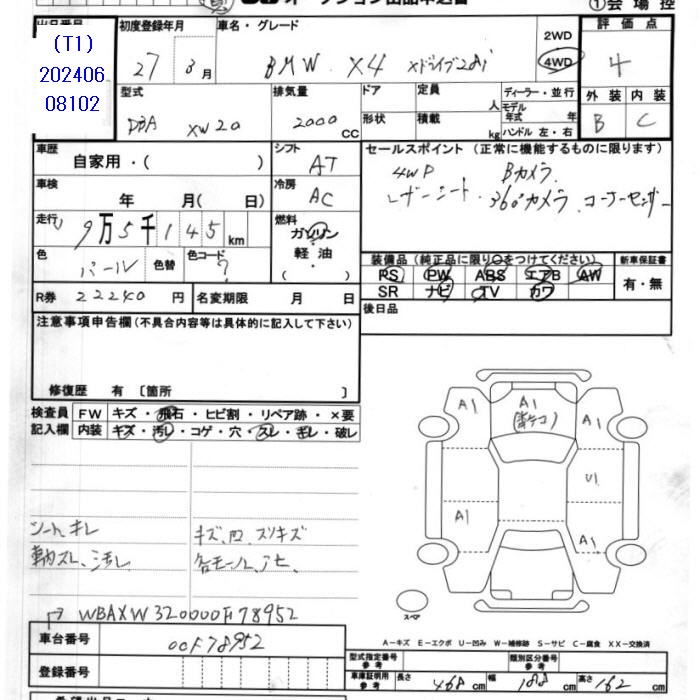 オークション出品申込書
①会場控
出品番号
(T1)
202406
08102
初度登録年月
27 8月
車名・グレード
BMW X4 xドライブ28i
2WD
4WD
評価点
4
外装 内装
B C
型式
DBA XW20
排気量
2000 CC
ドア
形状
定員 人
積載 kg
ディーラー・並行
モデル年式 年
ハンドル 左・右
車歴
自家用・( )
シフト
AT
セールスポイント (正常に機能するものに限ります)
4WD Bカメラ
レザーシート 360°カメラ コーナーセンサー
車検
年 月( 日)
冷房
AC
走行
9万5千145 km
燃料
ガソリン
軽油
( ・ )
色
パール
色替
色コード
?
装備品 (純正品に限り○をつけてください)
PS PW ABS エアB AW
SR ナビ TV カワ
新車保証書
有・無
R券 22240 円
名変期限 月 日
後日品
注意事項申告欄(不具合内容等は具体的に記入して下さい)
修復歴 有 〔箇所 〕
検査員記入欄
FW キズ・飛石・ヒビ割・リペア跡・×要
内装 キズ・汚レ・コゲ・穴・スレ・キレ・破レ
シートキレ
キズ、凹、スリキズ
革内スレ、汚レ
各モール、サビ
A1
A1
A1
U1
A1
A1
スペア
WBAXW320000F78952
車台番号
00F78952
登録番号
A−キズ E−エクボ U−凹み W−補修跡 S−サビ C−腐食 XX−交換済
型式指定番号 参考
類別区分番号 参考
車庫証明用 参考
長さ 468 cm 幅 188 cm 高さ 162 cm